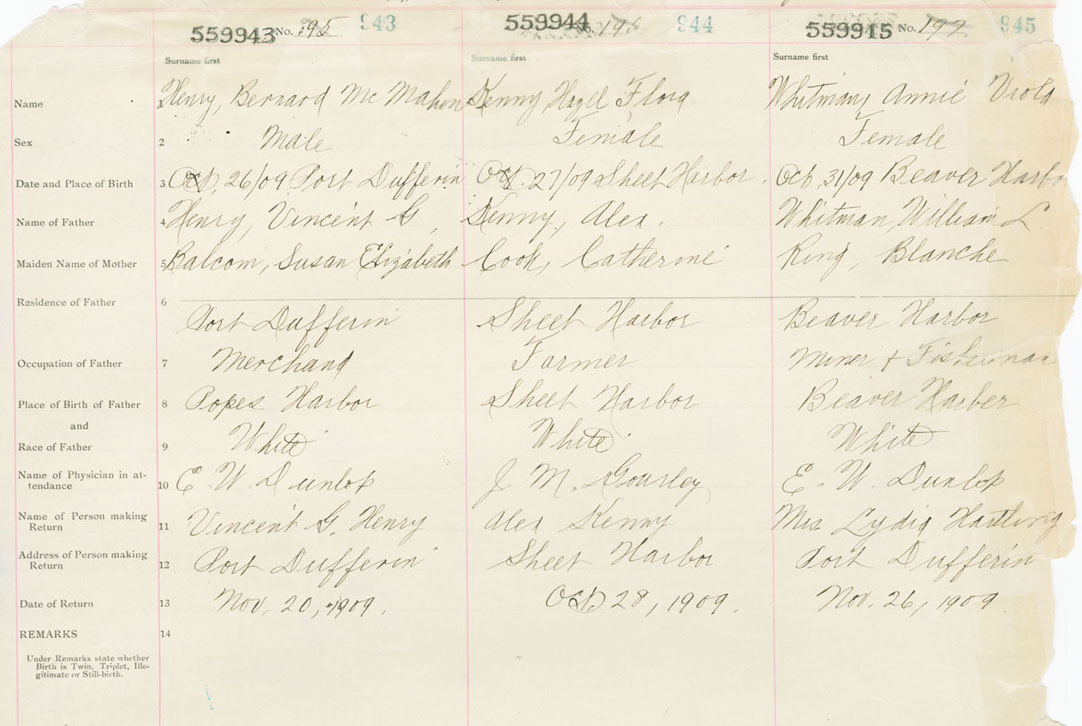 559943 No. 195 943 559944 No. 196 944 559945 No. 197 945
Surname first Surname first Surname first
Name 1 Henry, Bernard Mc Mahon Kenny, Hazel Flora Whitman, Annie Viola
Sex 2 Male Female Female
Date and Place of Birth 3 Oct. 26/09 Port Dufferin Oct. 27/09 Sheet Harbor. Oct. 31/09 Beaver Harbo
Name of Father 4 Henry, Vincent G. Kenny, Alex. Whitman, William L
Maiden Name of Mother 5 Balcom, Susan Elizabeth Cook, Catherine King, Blanche
Residence of Father 6
Port Dufferin Sheet Harbor Beaver Harbor
Occupation of Father 7 Merchant Farmer Miner & Fisherman
Place of Birth of Father 8 Popes Harbor Sheet Harbor Beaver Harber
and
Race of Father 9 White White White
Name of Physician in at-
tendance 10 E. W. Dunlop J. M. Gourley E. W. Dunlop
Name of Person making
Return 11 Vincent G. Henry Alex Kenny Mrs Lydia Hartling
Address of Person making
Return 12 Port Dufferin Sheet Harbor Port Dufferin
Date of Return 13 Nov. 20, 1909. Oct 28, 1909. Nov. 26, 1909.
REMARKS 14
Under Remarks state whether
Birth is Twin, Triplet, Ille-
gitimate or Still-birth.